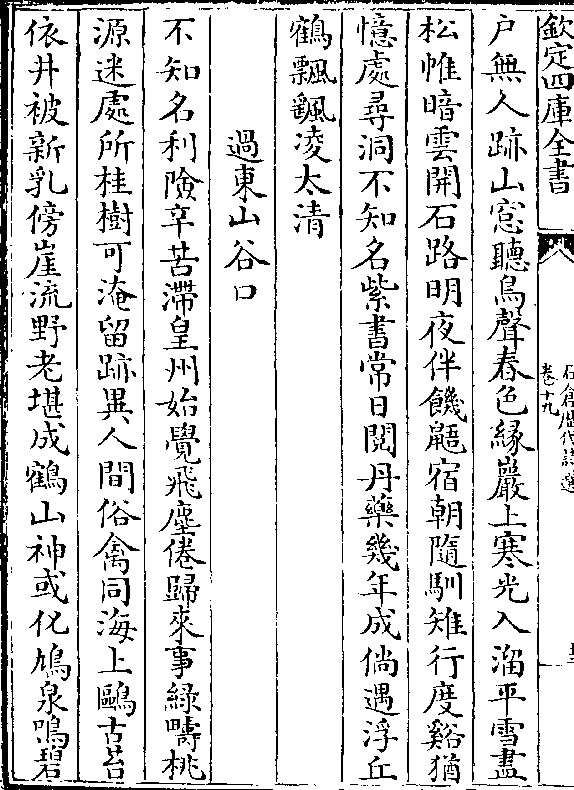 欽定四庫全書
石倉歷代詩選
卷十九
户無人跡山窓聽鳥聲春色緣巖上寒光入溜平雪盡
松帷暗雲開石路明夜伴饑鼯宿朝隨馴雉行度谿猶
憶處尋洞不知名紫書常日閱丹藥幾年成倘遇浮丘
鶴飄飄凌太清
過東山谷口
不知名利險辛苦滯皇州始覺飛塵倦歸來事綠疇桃
源迷處所桂樹可淹留跡異人間俗禽同海上鷗古苔
依井被新乳傍崖流野老堪成鶴山神或化鳩泉鳴碧